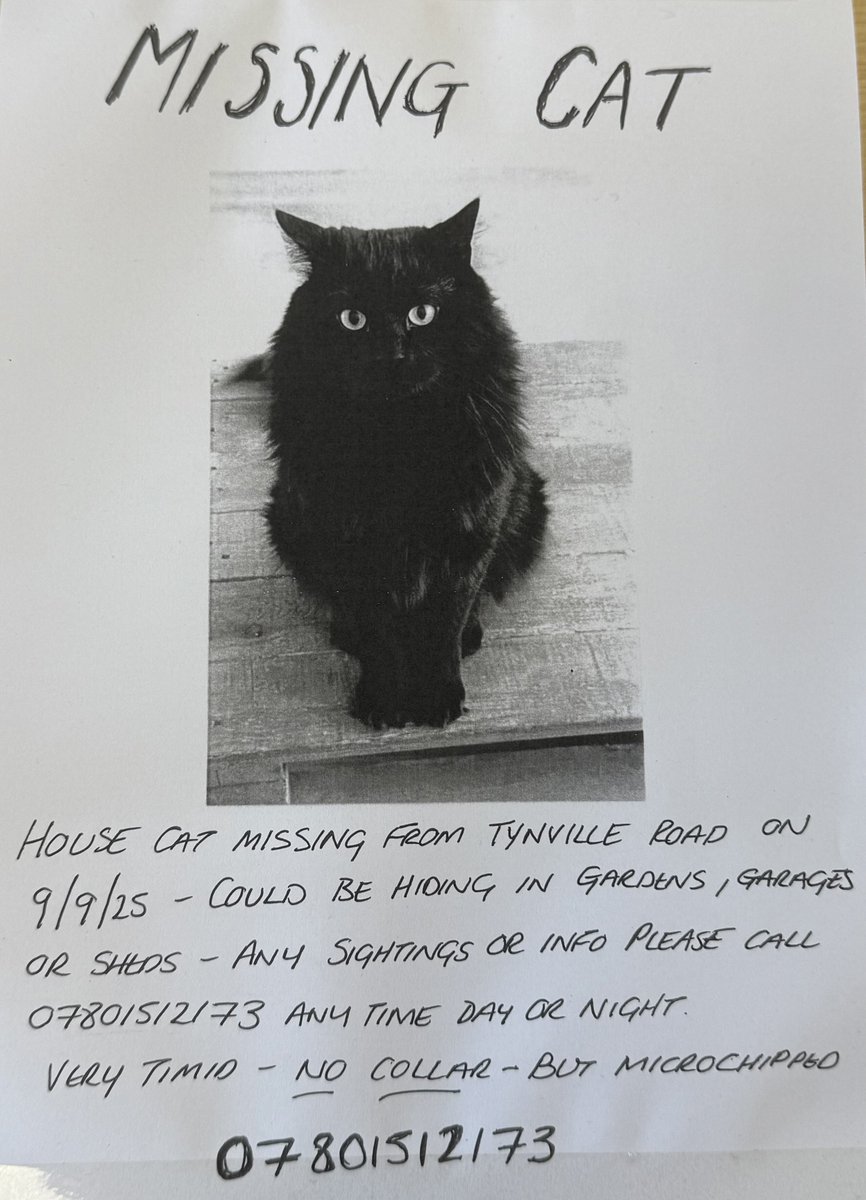 MISSING CAT
HOUSE CAT MISSING FROM TYNVILLE ROAD ON
9/9/25 - COULD BE HIDING IN GARDENS, GARAGES
OR SHEDS - ANY SIGHTINGS OR INFO PLEASE CALL
07801512173 ANY TIME DAY OR NIGHT.
VERY TIMID - NO COLLAR - BUT MICROCHIPPED
07801512173